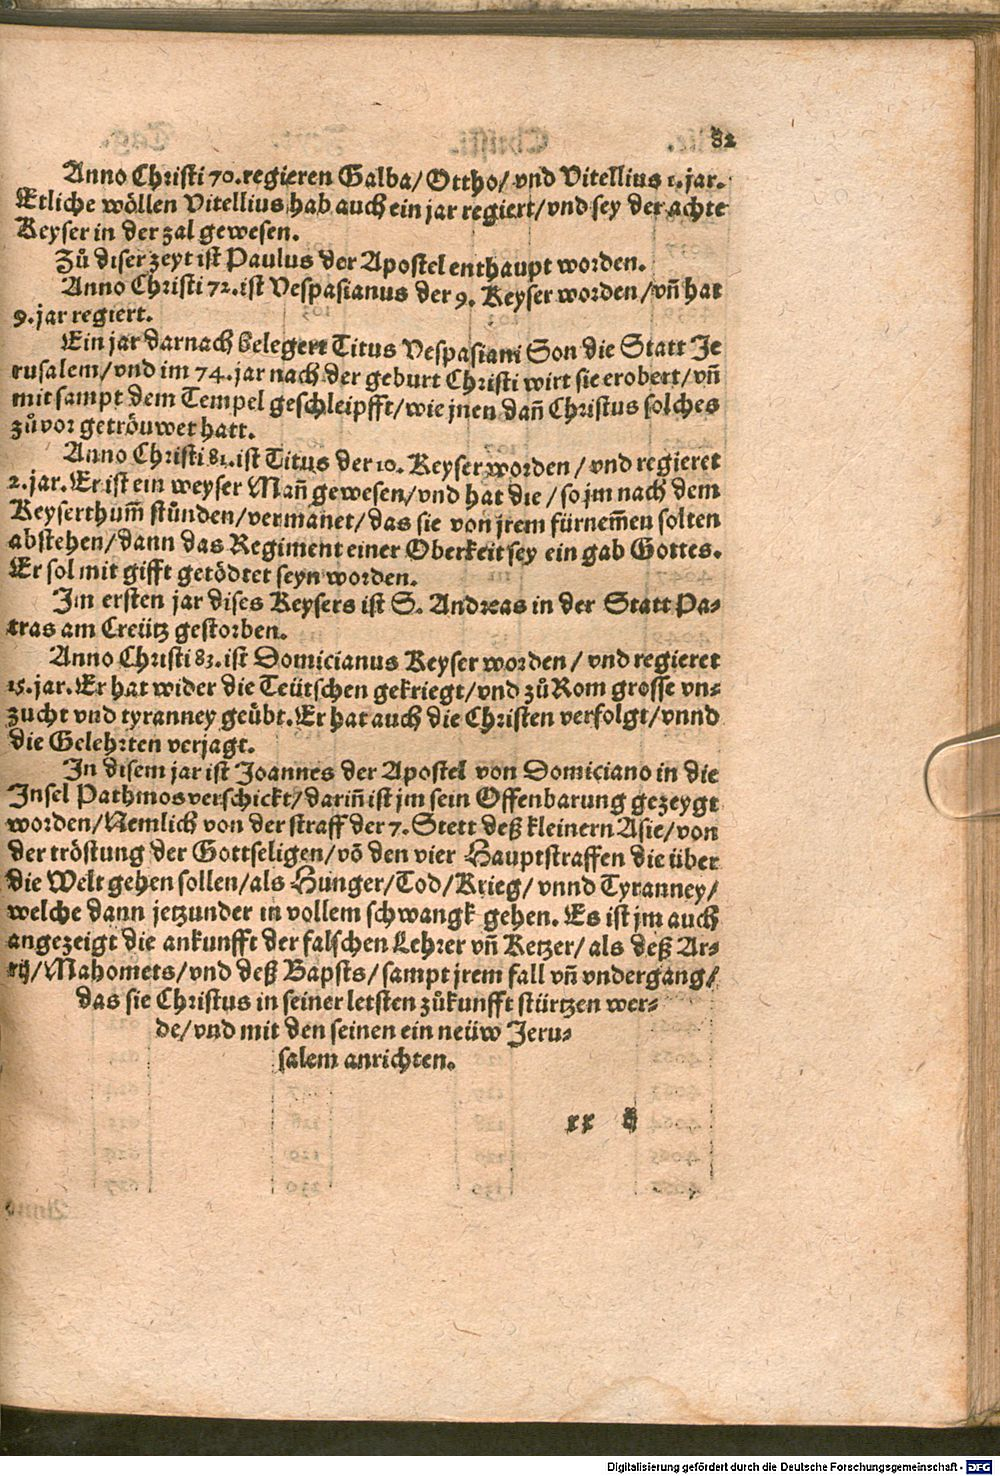 82
Anno Christi 70. regieren Galba/ Ottho/ vnd Vitellius 1. jar.
Etliche wöllen Vitellius hab auch ein jar regiert/ vnd sey der achte
Keyser in der zal gewesen.
Zů diser zeyt ist Paulus der Apostel enthaupt worden.
Anno Christi 72. ist Vespasianus der 9. Keyser worden/ vñ hat
9. jar regiert.
Ein jar darnach belegert Titus Vespasiani Son die Statt Je
rusalem/ vnd im 74. jar nach der geburt Christi wirt sie erobert/ vñ
mit sampt dem Tempel geschleipfft/ wie jnen dañ Christus solches
zůvor getröuwet hatt.
Anno Christi 81. ist Titus der 10. Keyser worden/ vnd regieret
2. jar. Er ist ein weyser Mañ gewesen/ vnd hat die/ so jm nach dem
Keyserthum̃ stůnden/ vermanet/ das sie von jrem fürnem̃en solten
abstehen/ dann das Regiment einer Oberkeit sey ein gab Gottes.
Er sol mit gifft getödtet seyn worden.
Im ersten jar dises Keysers ist S. Andreas in der Statt Pa-
tras am Creütz gestorben.
Anno Christi 83. ist Domicianus Keyser worden/ vnd regieret
15. jar. Er hat wider die Teütschen gekriegt/ vnd zů Rom grosse vn-
zucht vnd tyranney geübt. Er hat auch die Christen verfolgt/ vnnd
die Gelehrten verjagt.
In disem jar ist Joannes der Apostel von Domiciano in die
Insel Pathmos verschickt/ dariñ ist jm sein Offenbarung gezeygt
worden/ Nemlich von der straff der 7. Stett deß kleinern Asie/ von
der tröstung der Gottseligen/ võ den vier Hauptstraffen die über
die Welt gehen sollen/ als Hunger/ Tod/ Krieg/ vnnd Tyranney/
welche dann jetzunder in vollem schwangk gehen. Es ist jm auch
angezeigt die ankunfft der falschen Lehrer vñ Ketzer/ als deß Ar-
rij/ Mahomets/ vnd deß Bapsts/ sampt jrem fall vñ vndergang/
das sie Christus in seiner letsten zůkunfft stürtzen wer-
de/ vnd mit den seinen ein neüw Jeru-
salem anrichten.
xx ij
Digitalisierung gefördert durch die Deutsche Forschungsgemeinschaft - DFG